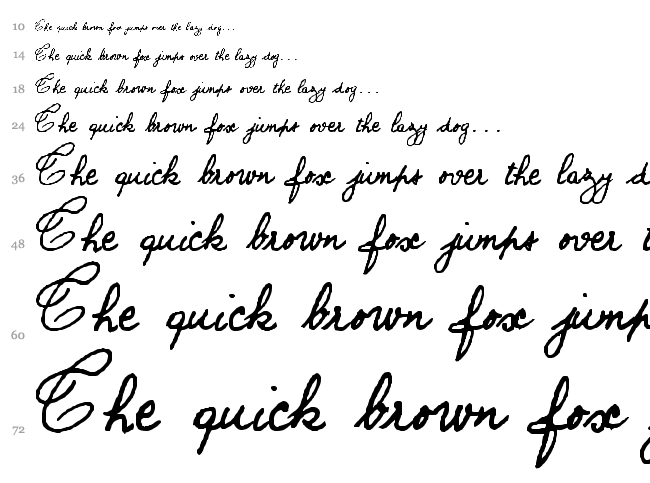 10 The quick brown fox jumps over the lazy dog...
14 The quick brown fox jumps over the lazy dog...
18 The quick brown fox jumps over the lazy dog...
24 The quick brown fox jumps over the lazy dog...
36 The quick brown fox jumps over the lazy d
48 The quick brown fox jumps over t
60 The quick brown fox jump
72 The quick brown fox j